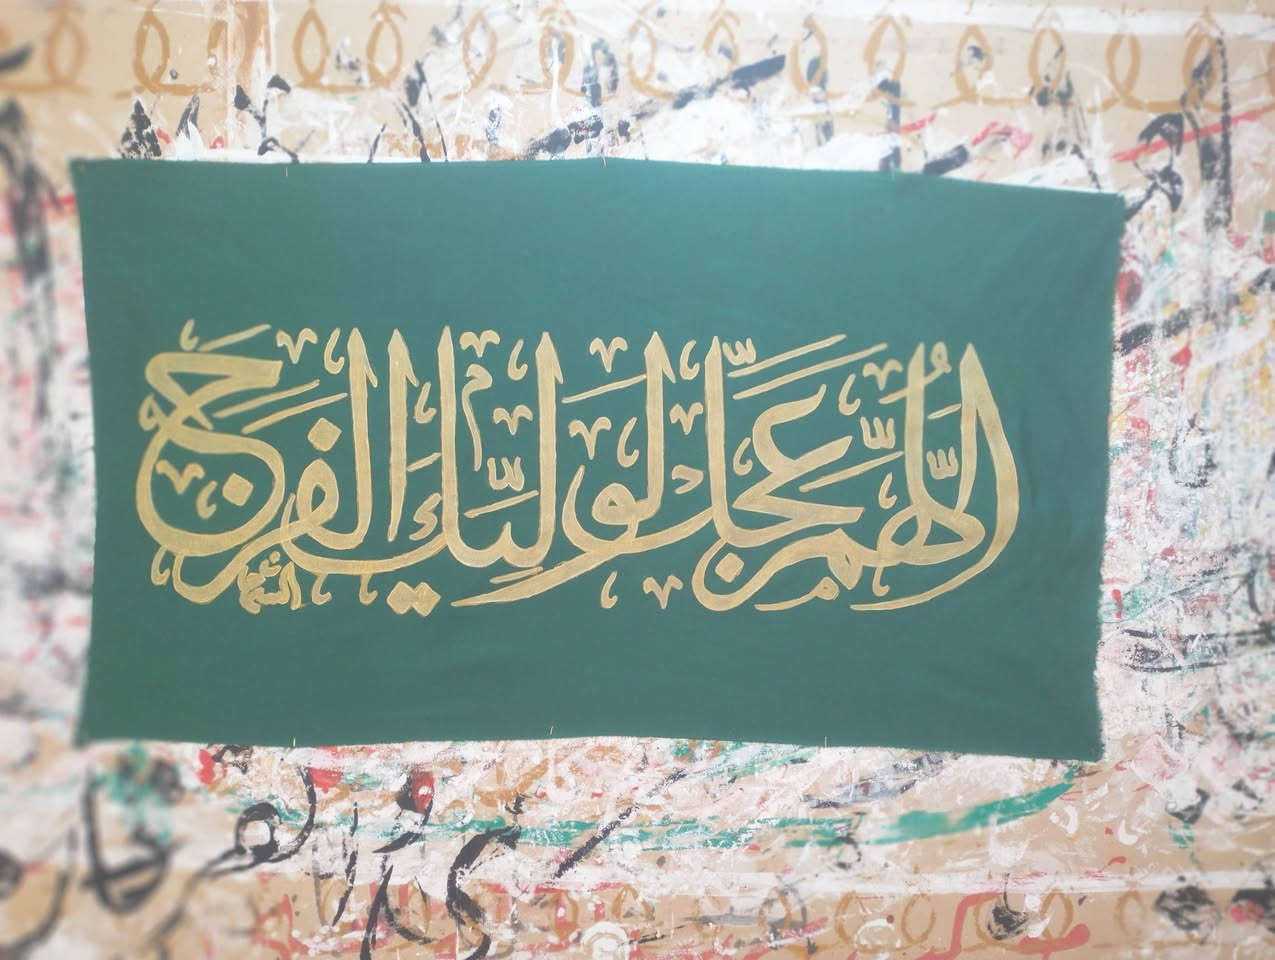 اللّٰهُمَّ عَجِّلْ لِوَلِيِّكَ الفَرَجَ